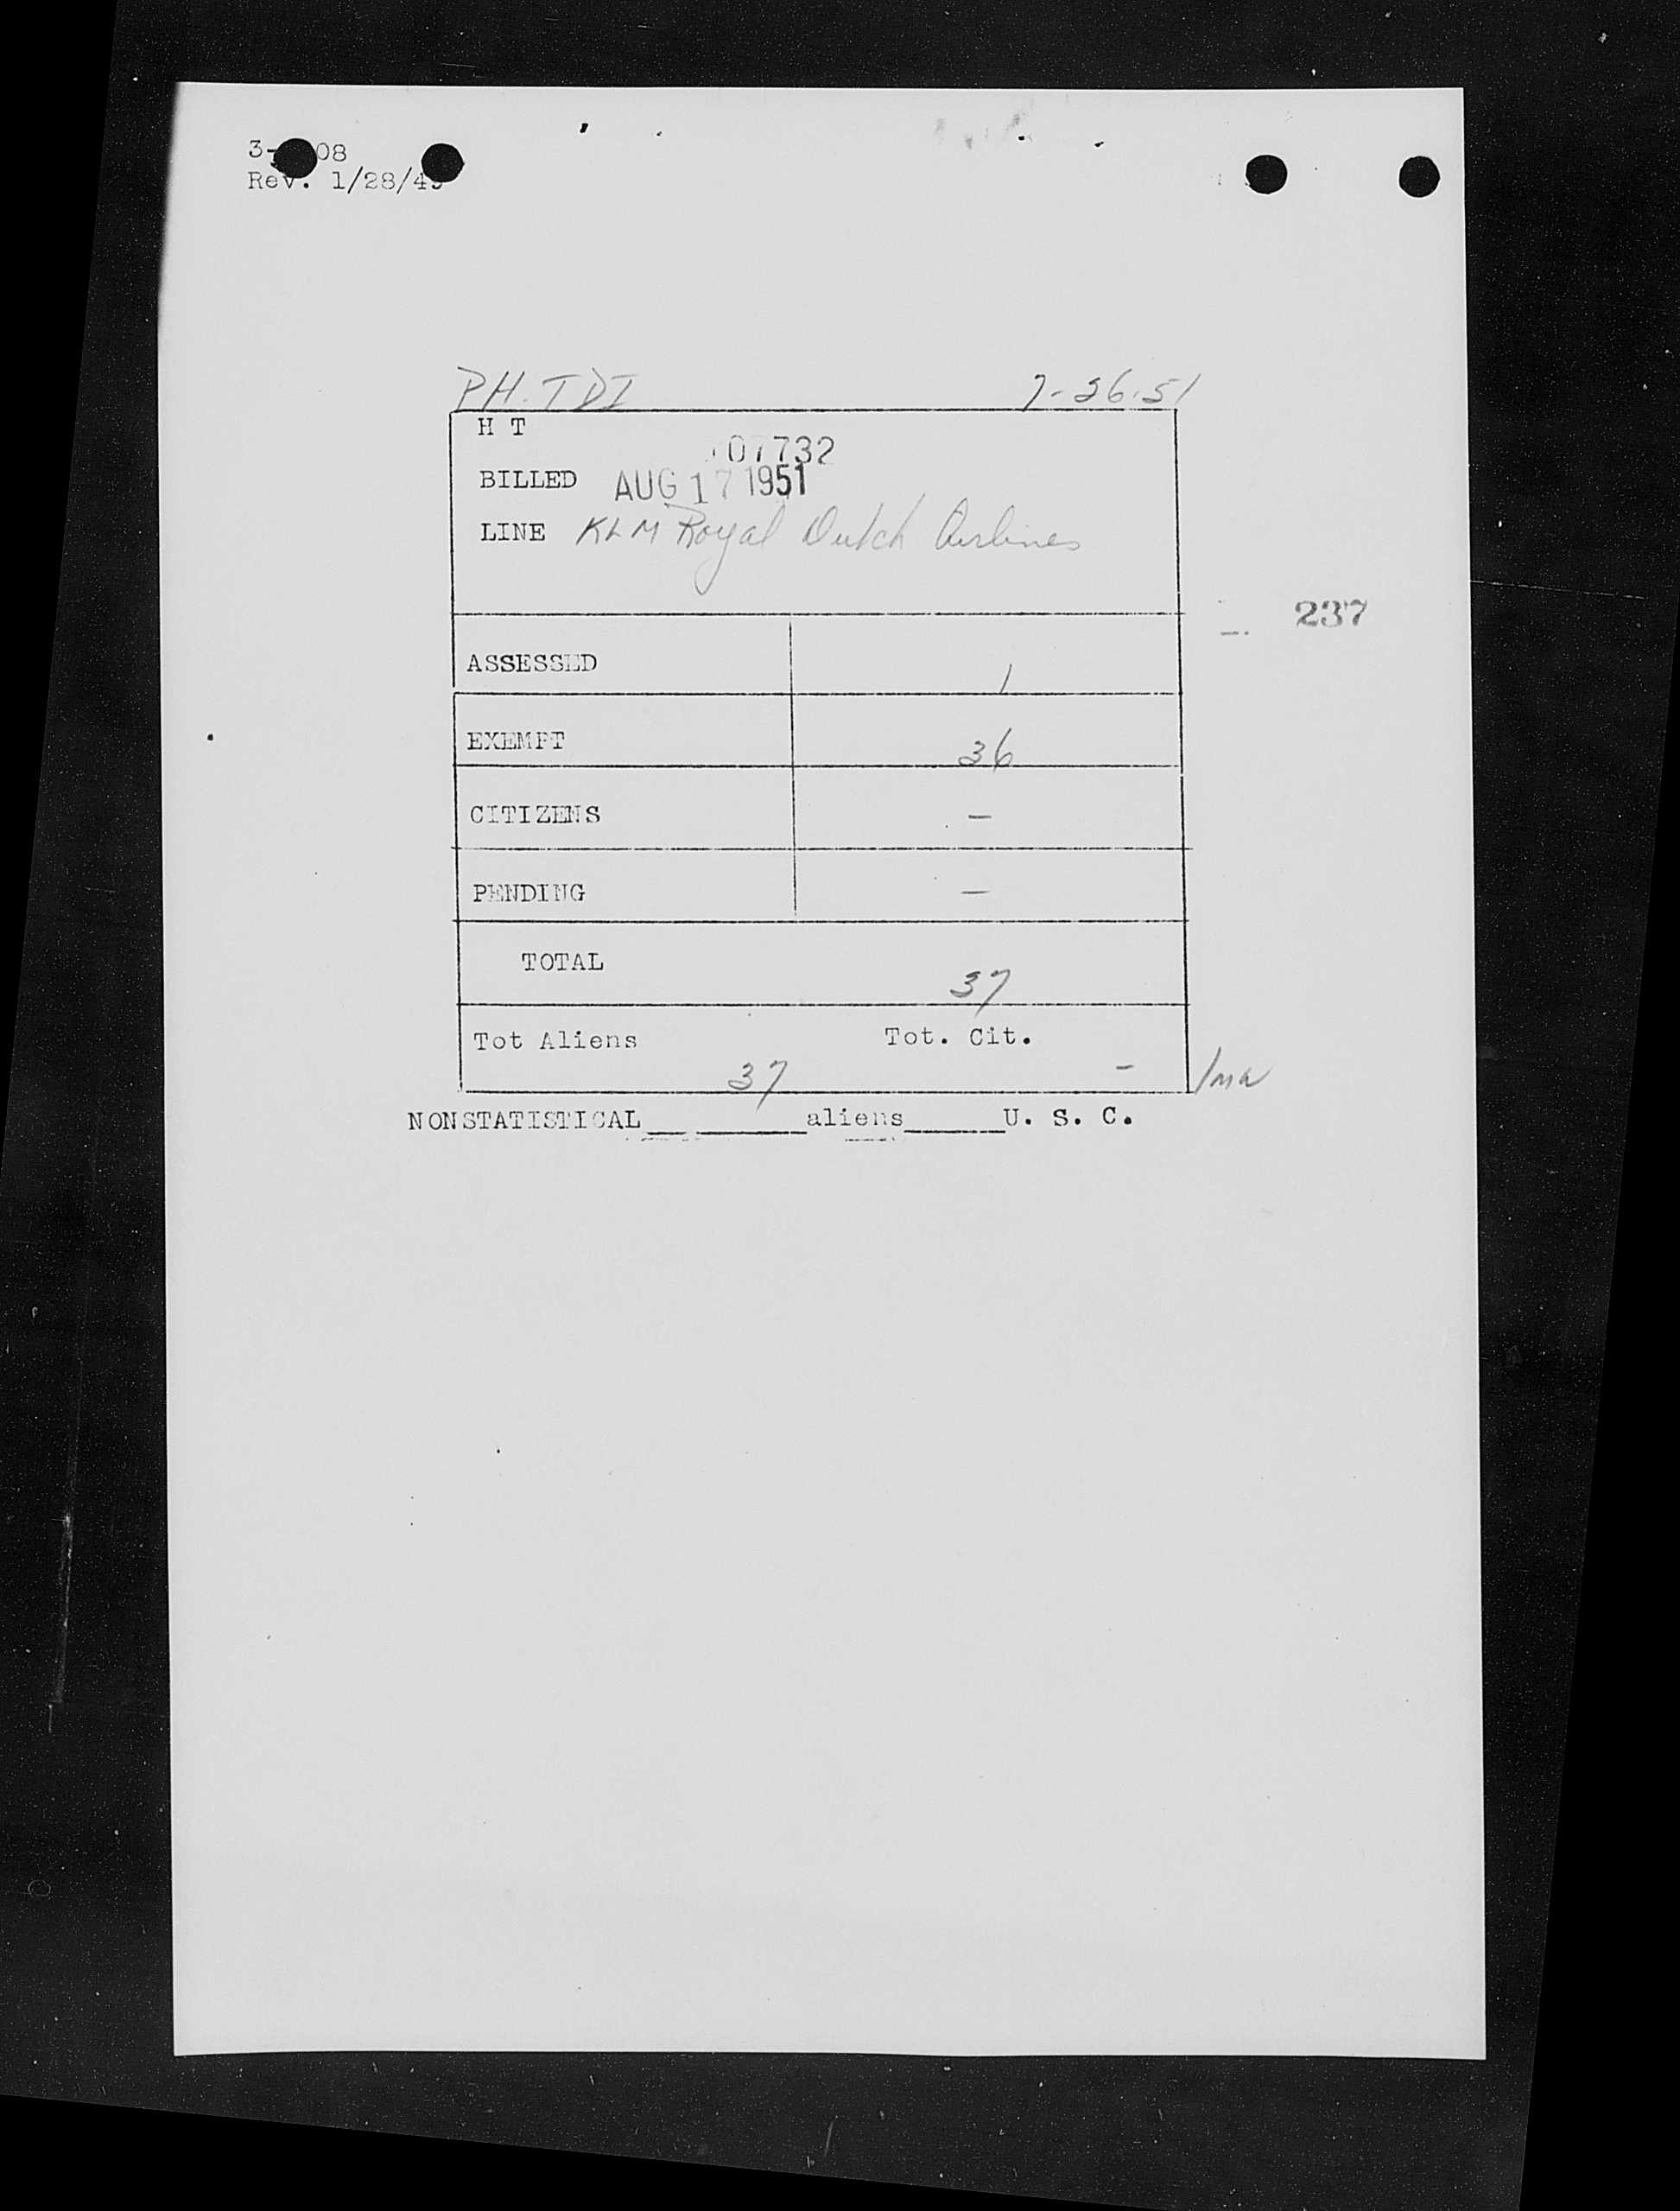 Rev. 1/28/49
PH-TDI 7-26-51
H T
07732
BILLED AUG 17 1951
LINE KLM Royal Dutch Airlines
237
ASSESSED 1
EXEMPT 36
CITIZENS —
PENDING —
TOTAL 37
Tot Aliens 37 Tot. Cit. -
NONSTATISTICAL aliens U. S. C.